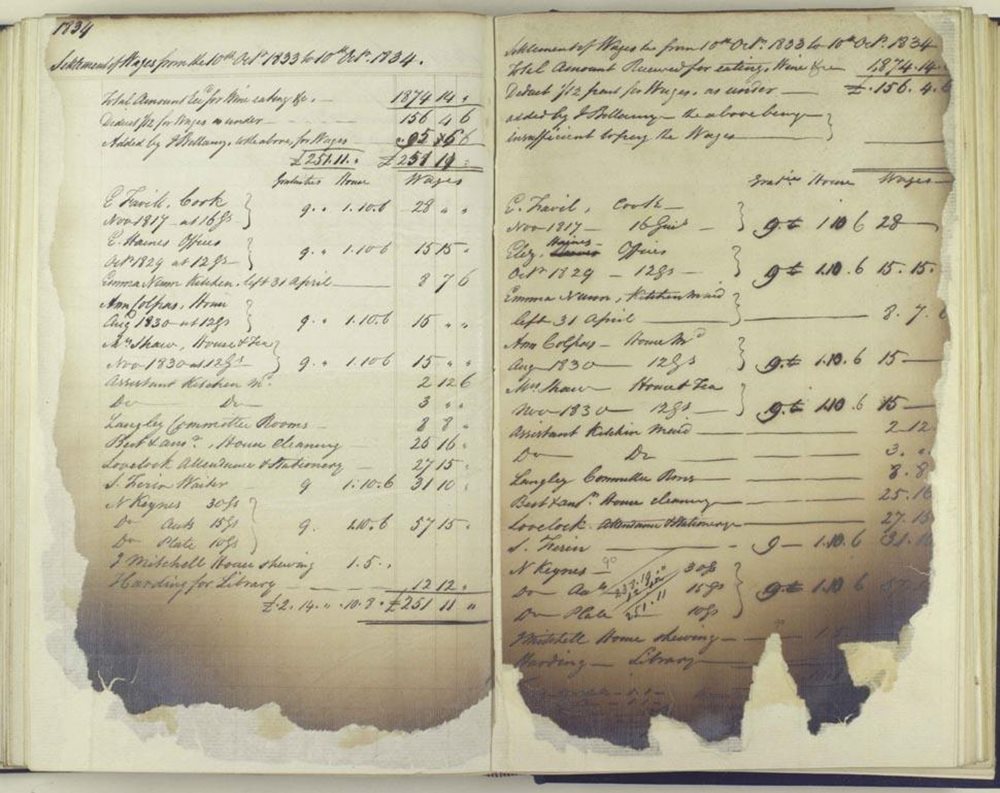 1834
Settlement of Wages from the 10th Octr 1833 to 10th Octr 1834.
Total Amount Recd for Wine eating &c. - 1874 14 "
Deduct 1/12 for Wages as under - 156 4 6
Added by J Bellamy, to the above, for Wages 95 6 6
£251.11. " £251 11 "
Gratuities House Wages
E. Favill, Cook
Novr 1817 - at 16Gs } 9. " 1.10.6 28 " "
E. Haines Offices
Octr 1829 at 12Gs } 9. " 1.10.6 15 15 "
Emma Nunn Kitchen, left 31 April 8 7 6
Ann Colpas, House
Aug 1830 at 12Gs } 9. " 1.10.6 15 " "
Mrs Shaw, House & Tea
Novr 1830 at 12Gs } 9. " 1.10.6 15 " "
Assistant Kitchen Md. 2 12 6
Do Do 3 " "
Langley Committee Rooms - 8 8 "
Best & anr. House Cleaning 25 16 "
Lovelock Attendance & Stationery 27 15 "
S. Ferin Waiter - 9 1.10.6 31 10 "
N Keynes 30Gs
Do Acts 15Gs } 9. 1.10.6 57 15 "
Do Plate 10Gs
J Mitchell House shewing 1.5. "
Harding for Library 12 12 "
£251 11 "
Settlement of Wages &c from 10th Octr. 1833 to 10th Octr. 1834
Total Amount Received for eating, Wine &c 1,874.14.
Deduct 1/12 part for Wages, as under £.156.4.6
added by J Bellamy - the above being
insufficient to pay the Wages }
Graties House Wages
E. Favil, Cook
Novr 1817 - 16Gns } 9 - 1 10 6 28
Eliz. Haines Offices
Octr 1829 - 12Gs } 9 - 1.10.6 15.15.
Emma Nunn, Kitchen Maid
left 31 April } 8.7.6
Ann Colpas - House Md
Aug 1830 12Gs } 9 - 1.10.6 15
Mrs Shaw House & Tea
Novr 1830 12Gs } 9 - 1.10.6 15
Assistant Kitchen Maid 2 12
Do Do 3.
Langley Committee Rms 8.8
Best & anr. House cleaning 25.16
Lovelock Attendance & Stationery 27.15
S. Ferin 9 - 1.10.6 31.10
N Keynes 30Gs
Do Acts 15Gs } 9 - 1.10 6 57
Do Plate 10Gs
251.11
J Mitchell House shewing 1.5
Harding - Library